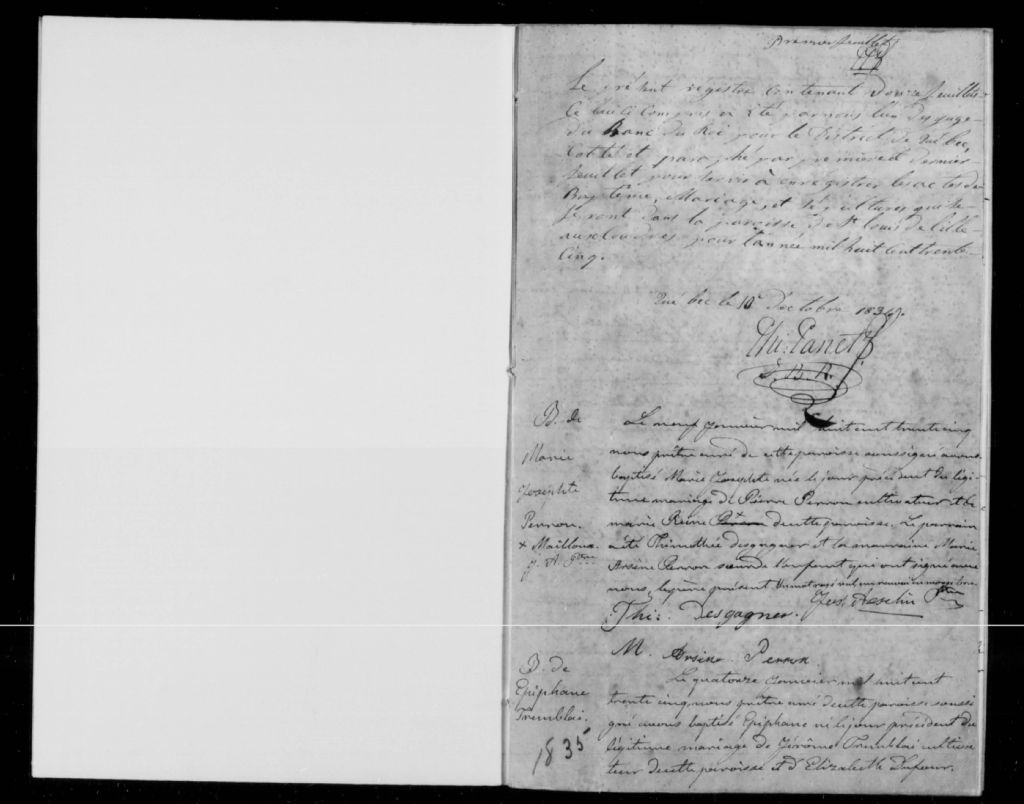 Premier feuillet
Le présent registre contenant Douze feuillets
Celui ci compris a été par nous l'un des juges
du Banc du Roi pour le District de Québec,
Cotté et paraphé par premier et dernier
feuillet pour servir à enrégistrer les actes de
Baptême, Mariage, et sépultures qui se
feront dans la paroisse de St Louis de l'isle
aux Coudres pour l'année mil huit cent trente
Cinq.
Québec le 10e Dectobre 1834.
Phi: Panet
J. B. R.
B. de
Marie
Josephte
Perron.
+ Mailloux.
J. A. Ptre
Le neuf Janvier mil huit cent trente cinq
nous prêtre curé de cette paroisse soussigné avons
baptisé Marie Josephte née le jour précédent du légi-
time mariage de Pierre Perron cultivateur et de
marie Reine Perron + de cette paroisse. Le parrain
a été Thimothée Desgagner et la marraine Marie
Arsène Perron soeur de l'enfant qui ont signé avec
nous, le père présent Un mot rayé nul, un renvoi en marge bon
Jos. Asselin Ptre
Thi: Desgagner.
M. Arsine Perron
B. de
Epiphane
Tremblai.
1835
Le quatorze Janvier mil huit cent
trente cinq nous prêtre curé de cette paroisse soussi
gné avons baptisé Epiphane né le jour précédent du
légitime mariage de Jérôme Tremblai cultiva
teur de cette paroisse et d'Elizabeth Dufour.